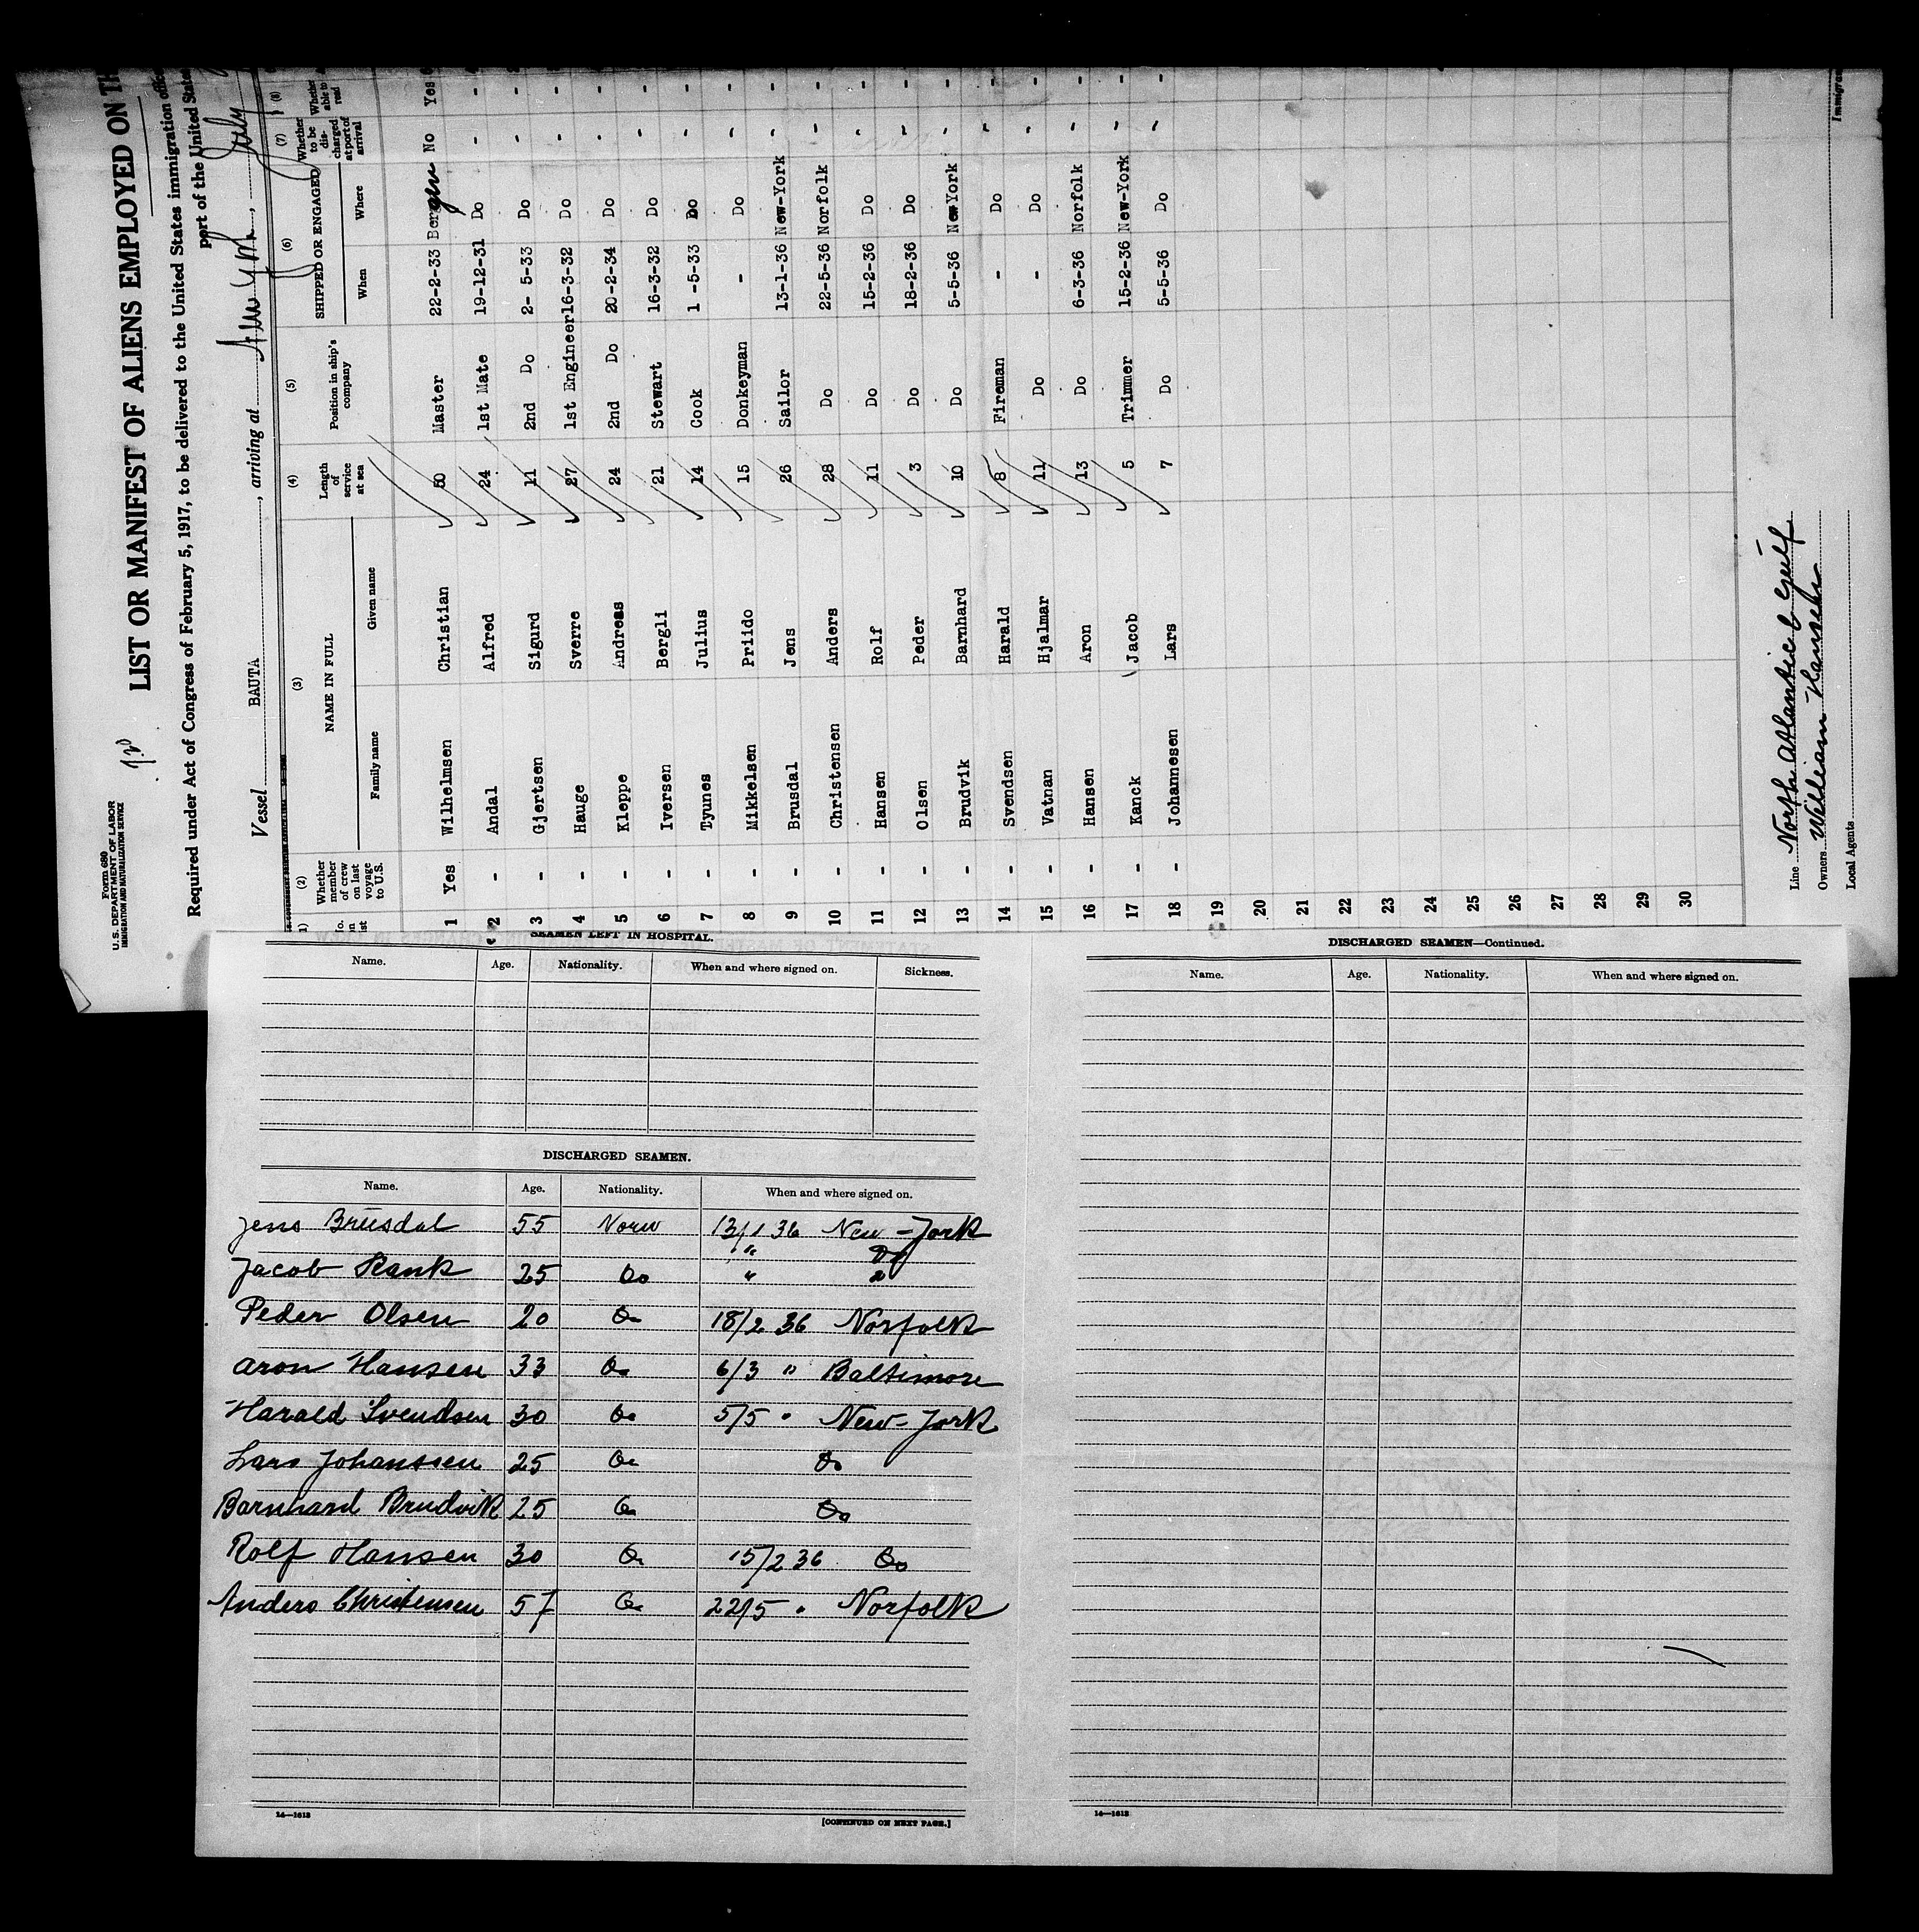 Form 680
U. S. DEPARTMENT OF LABOR
IMMIGRATION AND NATURALIZATION SERVICE
LIST OR MANIFEST OF ALIENS EMPLOYED ON TH
Required under Act of Congress of February 5, 1917, to be delivered to the United States immigration offi
port of the United State
Vessel BAUTA , arriving at , July
(2) (3) (4) (5) (6) (7) (8)
Whether member of crew on last voyage to U.S. NAME IN FULL Length of service at sea Position in ship's company SHIPPED OR ENGAGED Whether to be discharged at port of arrival Whether able to read
Family name Given name When Where
1 Yes Wilhelmsen Christian 50 Master 22-2-33 Bergen No Yes
2 - Andal Alfred 24 1st Mate 19-12-31 Do - -
3 - Gjertsen Sigurd 11 2nd Do 2- 5-33 Do - -
4 - Hauge Sverre 27 1st Engineer 16-3-32 Do - -
5 - Kleppe Andreas 24 2nd Do 20-2-34 Do - -
6 - Iversen Bergli 21 Stewart 16-3-32 Do - -
7 - Tyunes Julius 14 Cook 1 -5-33 Do - -
8 - Mikkelsen Priido 15 Donkeyman - Do - -
9 - Brusdal Jens 26 Sailor 13-1-36 New-York - -
10 - Christensen Anders 28 Do 22-5-36 Norfolk - -
11 - Hansen Rolf 11 Do 15-2-36 Do - -
12 - Olsen Peder 3 Do 18-2-36 Do - -
13 - Brudvik Barnhard 10 Do 5-5-36 New York - -
14 - Svendsen Harald 8 Fireman - Do - -
15 - Vatnan Hjalmar 11 Do - Do - -
16 - Hansen Aron 13 Do 6-3-36 Norfolk - -
17 - Kanck Jacob 5 Trimmer 15-2-36 New-York - -
18 - Johannesen Lars 7 Do 5-5-36 Do - -
19
20
21
22
23
24
25
26
27
28
29
30
Line North Atlantic & Gulf
Owners William Hansen
Local Agents
Immigran
SEAMEN LEFT IN HOSPITAL.
Name. Age. Nationality. When and where signed on. Sickness.
DISCHARGED SEAMEN.
Name. Age. Nationality. When and where signed on.
Jens Brusdal 55 Norw 13/1 36 New-York
" Do
Jacob Kank 25 Do "
Peder Olsen 20 Do 18/2 36 Norfolk
Aron Hansen 33 Do 6/3 " Baltimore
Harald Svendsen 30 Do 5/5 " New-York
Lars Johanssen 25 Do Do
Barnhard Brudvik 25 Do Do
Rolf Hansen 30 Do 15/2 36 Do
Anders Christensen 57 Do 22/5 " Norfolk
14—1613
[CONTINUED ON NEXT PAGE.]
DISCHARGED SEAMEN—Continued.
Name. Age. Nationality. When and where signed on.
14—1613